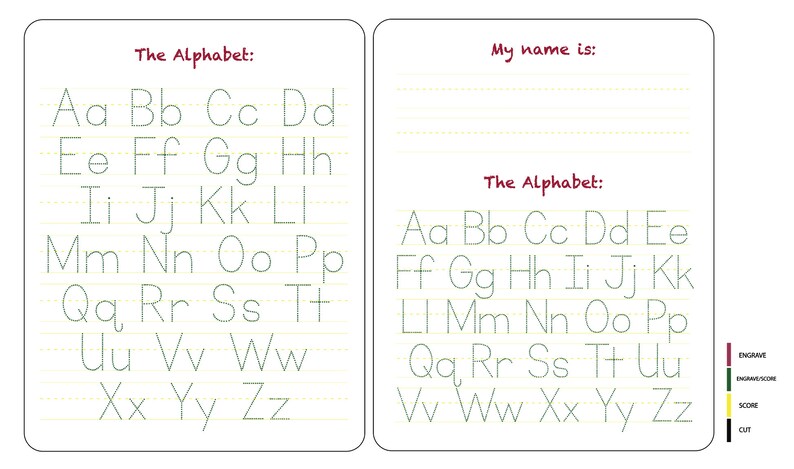 The Alphabet:
Aa Bb Cc Dd
Ee Ff Gg Hh
Ii Jj Kk Ll
Mm Nn Oo Pp
Qq Rr Ss Tt
Uu Vv Ww
Xx Yy Zz
My name is:
The Alphabet:
Aa Bb Cc Dd Ee
Ff Gg Hh Ii Jj Kk
Ll Mm Nn Oo Pp
Qq Rr Ss Tt Uu
Vv Ww Xx Yy Zz
ENGRAVE
ENGRAVE/SCORE
SCORE
CUT